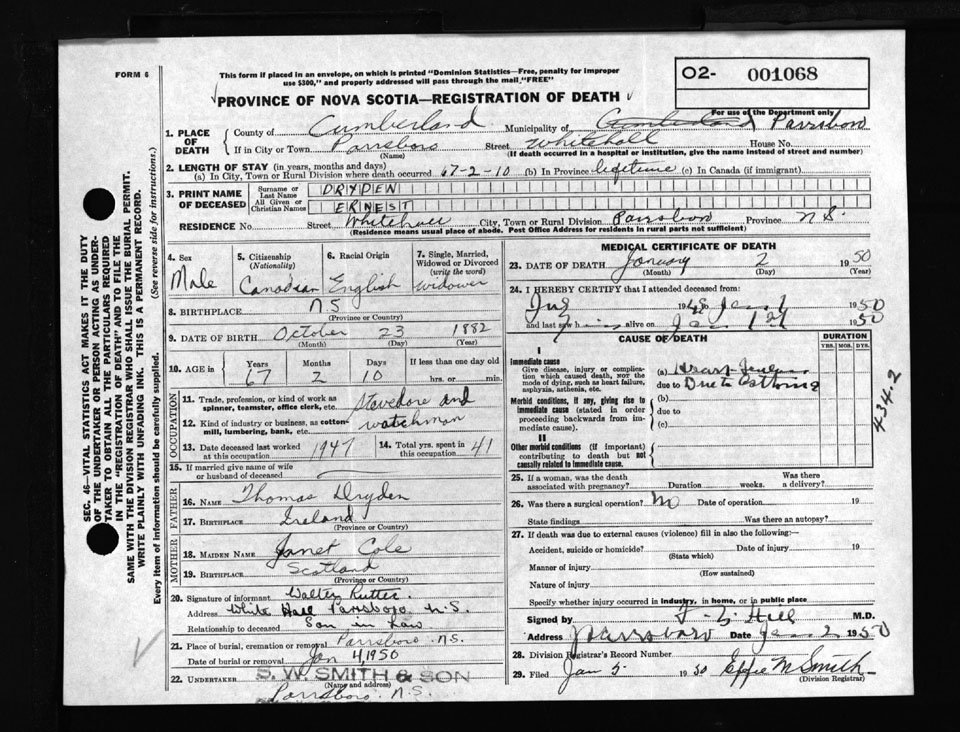 FORM 6
This form if placed in an envelope, on which is printed "Dominion Statistics—Free, penalty for improper
use $300," and properly addressed will pass through the mail "FREE"
O2- 001068
For use of the Department only
PROVINCE OF NOVA SCOTIA—REGISTRATION OF DEATH
1. PLACE OF DEATH
County of Cumberland Municipality of Cumberland Parrsboro
If in City or Town Parrsboro Street Whitehall House No.
(Name) (If death occurred in a hospital or institution, give the name instead of street and number)
2. LENGTH OF STAY (in years, months and days)
(a) In City, Town or Rural Division where death occurred 67-2-10 (b) In Province lifetime (c) In Canada (if immigrant)
3. PRINT NAME OF DECEASED
Surname or Last Name DRYDEN
All Given or Christian Names ERNEST
RESIDENCE No. Street Whitehall City, Town or Rural Division Parrsboro Province N.S.
(Residence means usual place of abode. Post Office Address for residents in rural parts not sufficient)
4. Sex Male
5. Citizenship (Nationality) Canadian
6. Racial Origin English
7. Single, Married, Widowed or Divorced (write the word) widower
8. BIRTHPLACE N.S
(Province or Country)
9. DATE OF BIRTH October 23 1882
(Month) (Day) (Year)
10. AGE in Years 67 Months 2 Days 10 If less than one day old hrs. or min.
OCCUPATION
11. Trade, profession or kind of work as spinner, teamster, office clerk, etc. Stevedore and
12. Kind of industry or business, as cotton-mill, lumbering, bank, etc. watchman
13. Date deceased last worked at this occupation 1947
14. Total yrs. spent in this occupation 41
15. If married give name of wife or husband of deceased
FATHER
16. NAME Thomas Dryden
17. BIRTHPLACE Ireland
(Province or Country)
MOTHER
18. MAIDEN NAME Janet Cole
19. BIRTHPLACE Scotland
(Province or Country)
20. Signature of informant Walter
Address White Hall Parrsboro N.S.
Relationship to deceased Son in Law
21. Place of burial, cremation or removal Parrsboro N.S.
Date of burial or removal Jan 4, 1950
22. UNDERTAKER S. W. SMITH & SON
(Name and address)
Parrsboro N.S.
MEDICAL CERTIFICATE OF DEATH
23. DATE OF DEATH January 2 1950
(Month) (Day) (Year)
24. I HEREBY CERTIFY that I attended deceased from:
1948 1950
and last saw him alive on 1950
CAUSE OF DEATH DURATION
YRS. MOS. DYS.
I
Immediate cause
Give disease, injury or complication which caused death, not the mode of dying, such as heart failure, asphyxia, asthenia, etc.
(a) Heart
due to Due to asthma
Morbid conditions, if any, giving rise to immediate cause (stated in order proceeding backwards from immediate cause).
(b)
due to
(c)
II
Other morbid conditions (if important) contributing to death but not causally related to immediate cause.
434.2
25. If a woman, was the death associated with pregnancy? Duration weeks. Was there a delivery?
26. Was there a surgical operation? No Date of operation 19
State findings Was there an autopsy?
27. If death was due to external causes (violence) fill in also the following:—
Accident, suicide or homicide? Date of injury 19
(State which)
Manner of injury
(How sustained)
Nature of injury
Specify whether injury occurred in industry, in home, or in public place
Signed by Hill M.D.
Address Parrsboro Date Jan 2 1950
28. Division Registrar's Record Number
29. Filed Jan 5 1950 Effie M Smith
(Division Registrar)
SEC. 46—VITAL STATISTICS ACT MAKES IT THE DUTY
OF THE UNDERTAKER OR PERSON ACTING AS UNDER-
TAKER TO OBTAIN ALL THE PARTICULARS REQUIRED
IN THE "REGISTRATION OF DEATH" AND TO FILE THE
SAME WITH THE DIVISION REGISTRAR WHO SHALL ISSUE THE BURIAL PERMIT.
WRITE PLAINLY WITH UNFADING INK. THIS IS A PERMANENT RECORD.
Every item of Information should be carefully supplied. (See reverse side for instructions.)